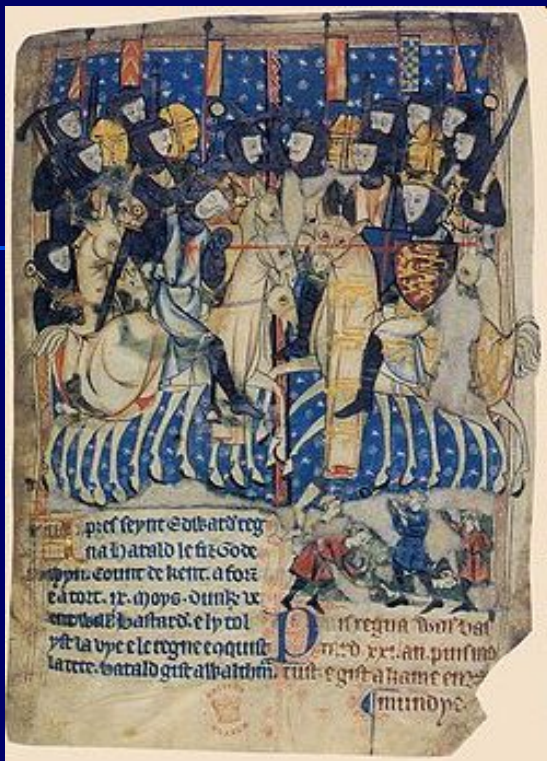 pres seynt Edward reg
na Harald le fiz Gode
wyn. Count de kent. a fort
e a tort. ix. moys. dunke ve
bastard. e ly tol
yst la vye e le regne e
la tere. harald gist a Walthm.
Puis regna Will bas
xxi. an. puis
rust. e gist a kame en
mundye.